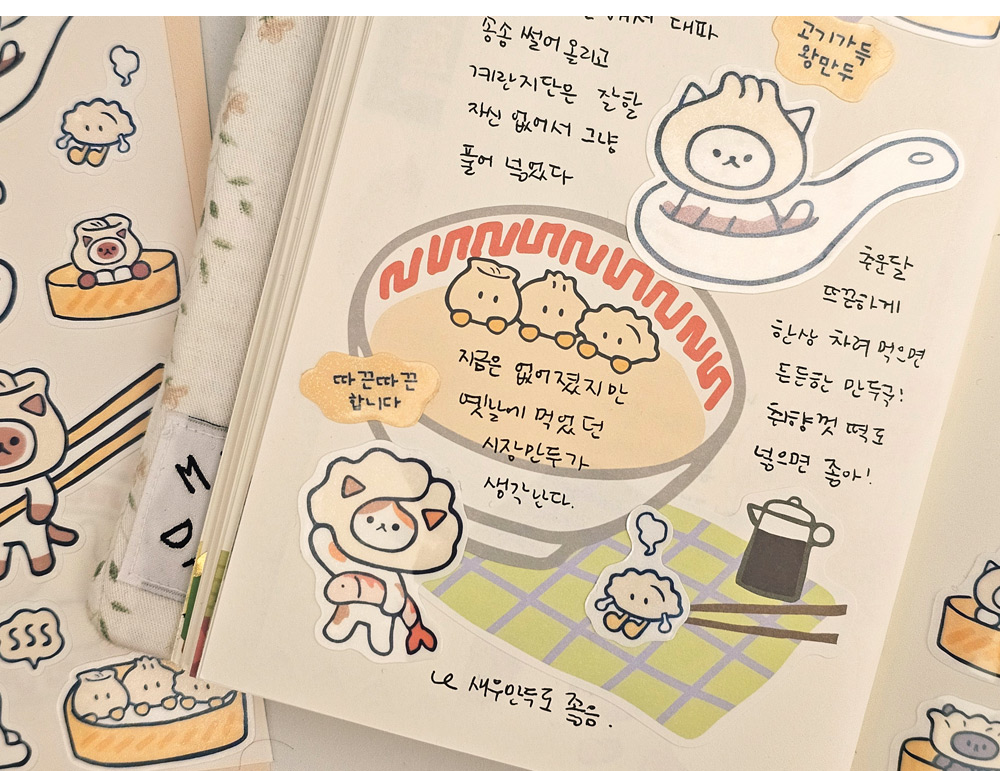 대파
송송 썰어 올리고
계란지단은 잘할
자신 없어서 그냥
풀어 넣었다
고기가득
왕만두
추운날
뜨끈하게
한상 차려 먹으면
든든한 만두국!
취향껏 떡도
넣으면 좋아!
따끈따끈
합니다
지금은 없어졌지만
옛날에 먹었던
시장만두가
생각난다.
새우만두도 좋음.
SSS
M
D